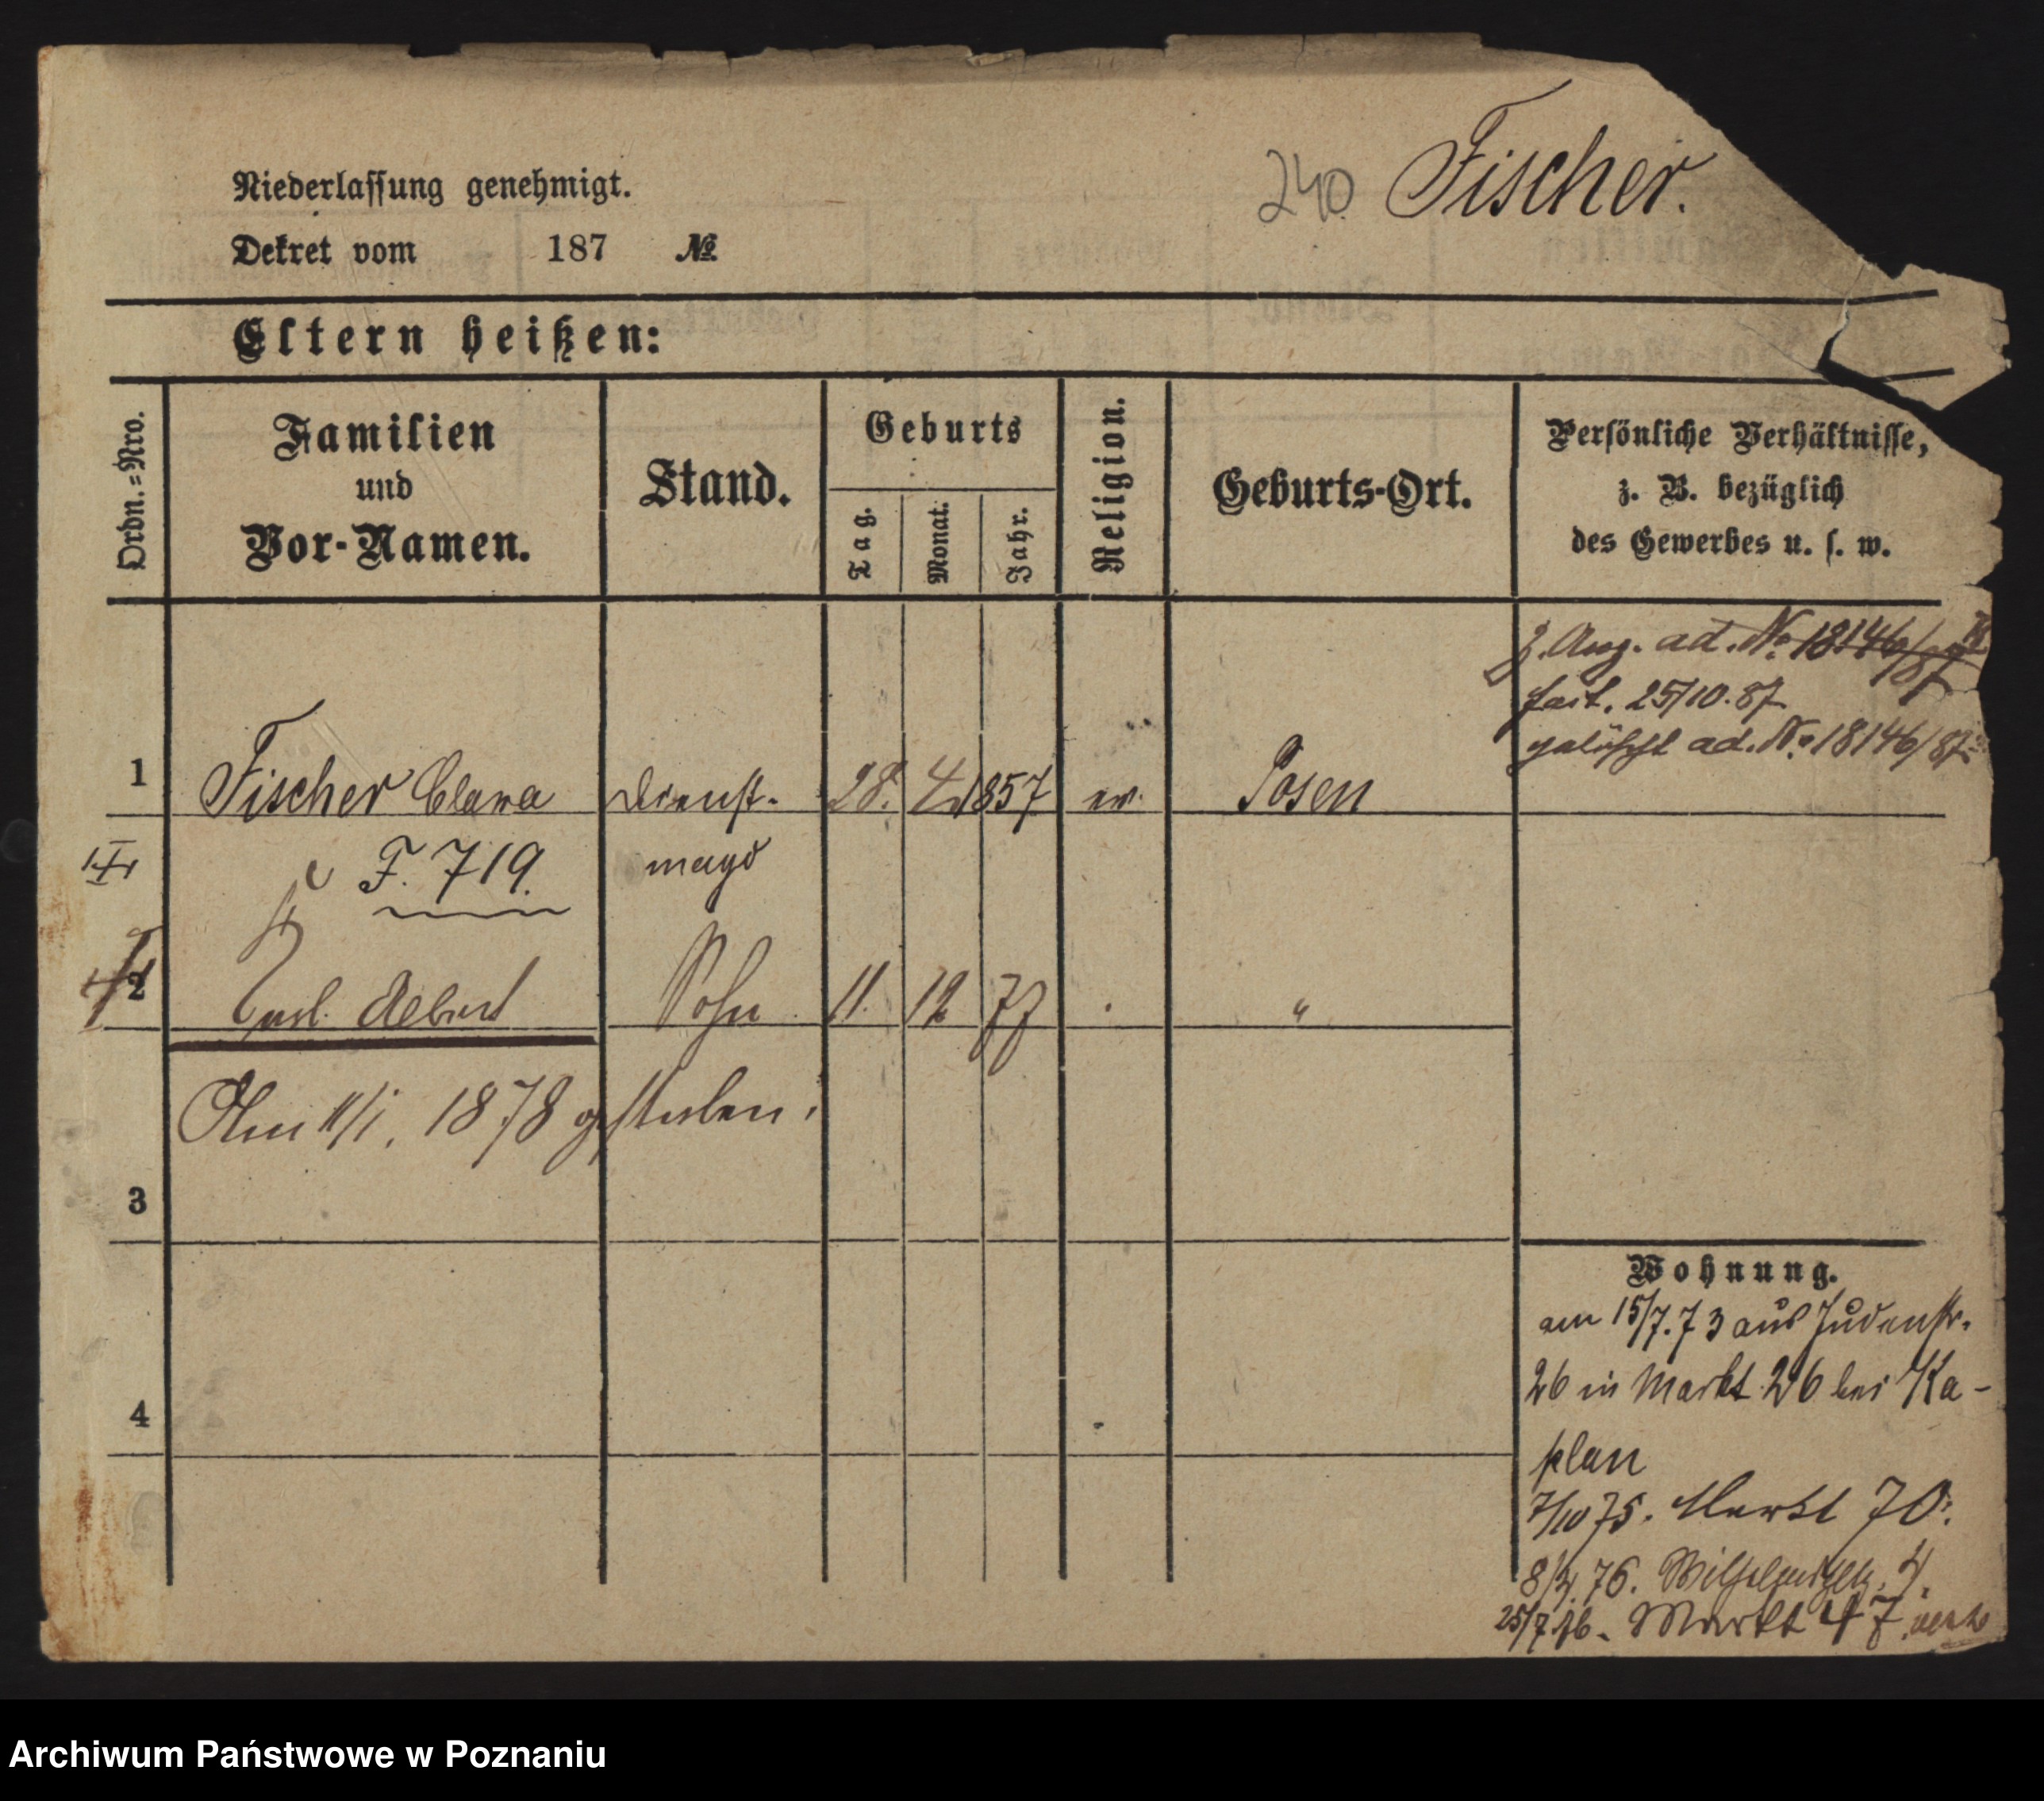 240. Fischer.
Niederlassung genehmigt.
Dekret vom 187 №
Eltern heißen:
Ordn.=Nro.
Familien
und
Vor-Namen.
Stand.
Geburts
Tag.
Monat.
Jahr.
Religion.
Geburts-Ort.
Persönliche Verhältnisse,
z. B. bezüglich
des Gewerbes u. s. w.
ad. No 18146/87
25/10.87
gelöscht ad. No 18146/87
1 Fischer Clara Dienst- 28. 4. 1857 ev. Posen
F. 719. magd
2 Albert Sohn 11. 12 77 . "
Am 11/1. 1878 gestorben.
3
4
Wohnung.
am 15/7.73 aus Judenstr.
26 in Markt 26 bei Ka-
plan
7/10 75. Markt 70.
76.
25/7 76. Markt 47.
Archiwum Państwowe w Poznaniu